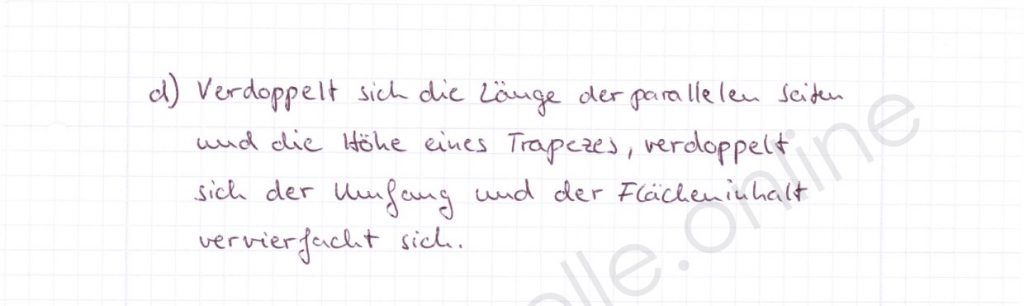 d) Verdoppelt sich die Länge der parallelen Seiten
und die Höhe eines Trapezes, verdoppelt
sich der Umfang und der Flächeninhalt
vervierfacht sich.
olle.online